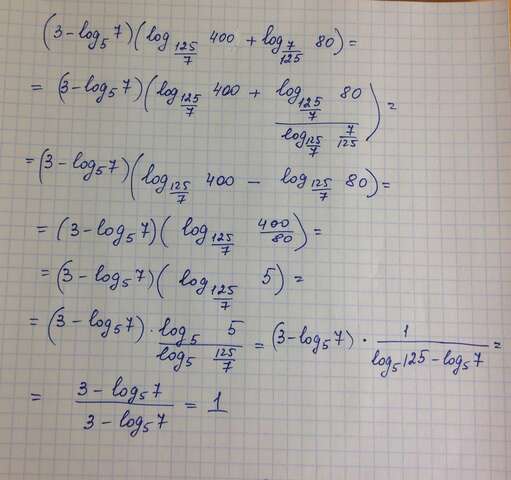 (3-log₅7)(log_{125/7} 400 + log_{7/125} 80) =
= (3-log₅7)(log_{125/7} 400 + \frac{log_{125/7} 80}{log_{125/7} \frac{7}{125}}) =
= (3-log₅7)(log_{125/7} 400 - log_{125/7} 80) =
= (3-log₅7)(log_{125/7} \frac{400}{80}) =
= (3-log₅7)(log_{125/7} 5) =
= (3-log₅7) · \frac{log₅ 5}{log₅ \frac{125}{7}} = (3-log₅7) · \frac{1}{log₅125-log₅7} =
= \frac{3-log₅7}{3-log₅7} = 1